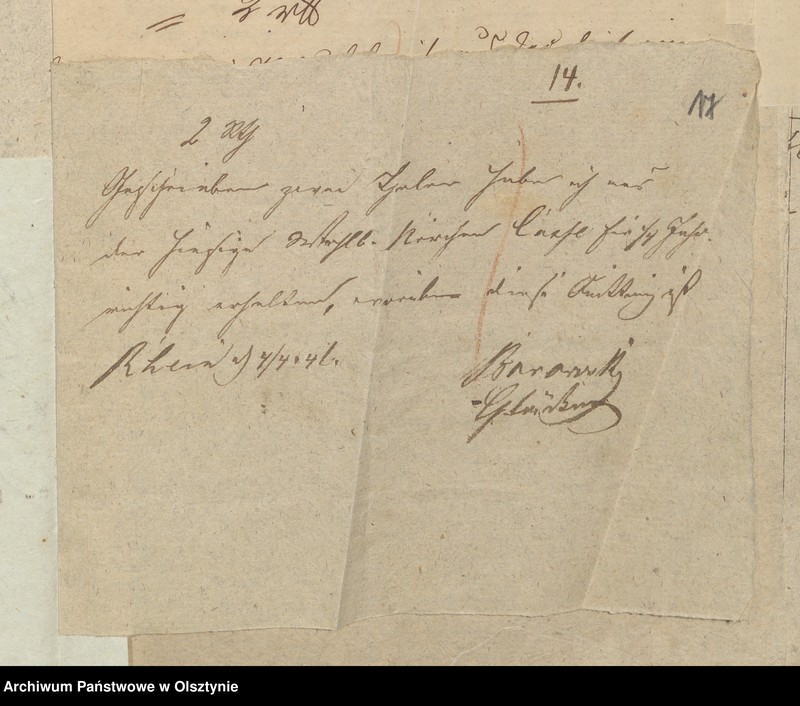 2 rtl
14.
17
2 Rth
Geschrieben zwei Thaler habe ich aus
der hiesigen Kirchen Casse für 1/4 Jahr
richtig erhalten, worüber diese Quittung ist
Rhein d 4/4. 41.
Borowski
Glöckner
Archiwum Państwowe w Olsztynie